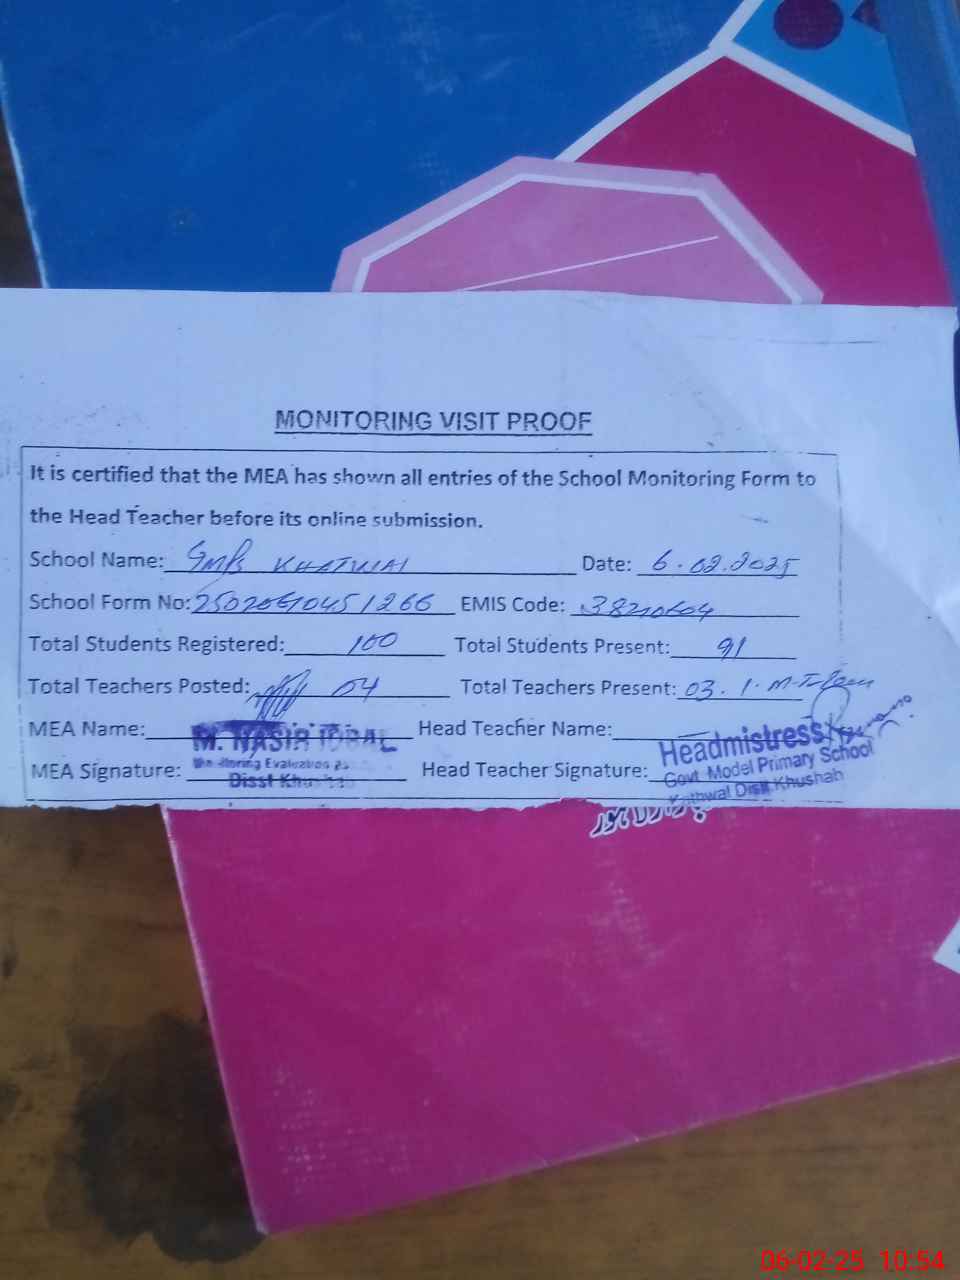 MONITORING VISIT PROOF
It is certified that the MEA has shown all entries of the School Monitoring Form to
the Head Teacher before its online submission.
School Name: GMPS KHATWAI Date: 6.02.2025
School Form No: EMIS Code:
Total Students Registered: 100 Total Students Present: 91
Total Teachers Posted: 04 Total Teachers Present: 03.
MEA Name: M. NASIR IQBAL Head Teacher Name:
MEA Signature: Head Teacher Signature:
Disst
Headmistress
Govt Model Primary School
Kathwai Distt Khushab
06-02-25 10:54